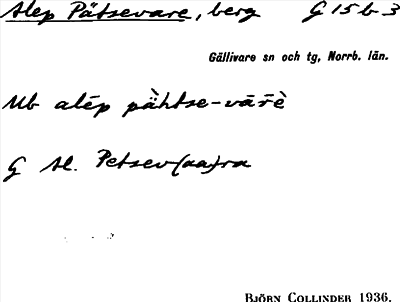 Alep Pätsevare, berg G 15 b 3
Gällivare sn och tg, Norrb. län.
Ub alēp pàhtse-vār̄è
G Al. Petsev(aa)ra
BJÖRN COLLINDER 1936.